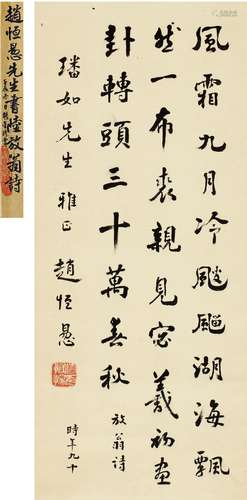 趙恒惖先生書陸放翁詩
風霜九月冷颼颼湖海飄
然一布裘親見宓羲初畫
卦轉頭三十萬春秋 放翁詩
璠如先生雅正 趙恒惖
時年九十